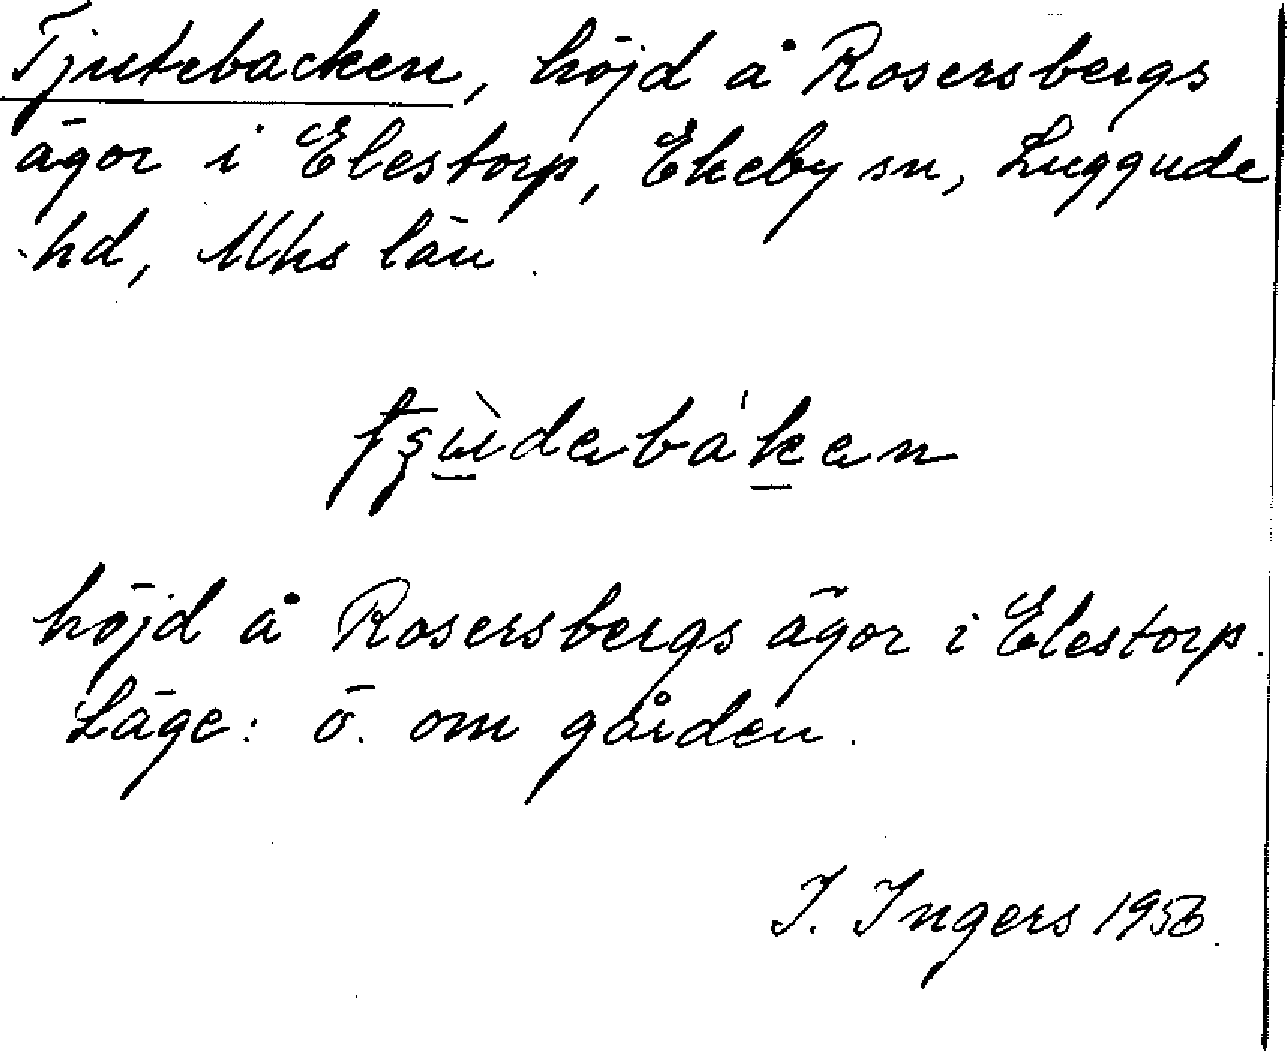 Tjutebacken, höjd å Rosersbergs
ägor i Elestorp, Ekeby sn, Luggude
hd, Mhs län.
höjd å Rosersbergs ägor i Elestorp.
Läge: ö. om gården.
I. Ingers 1956.